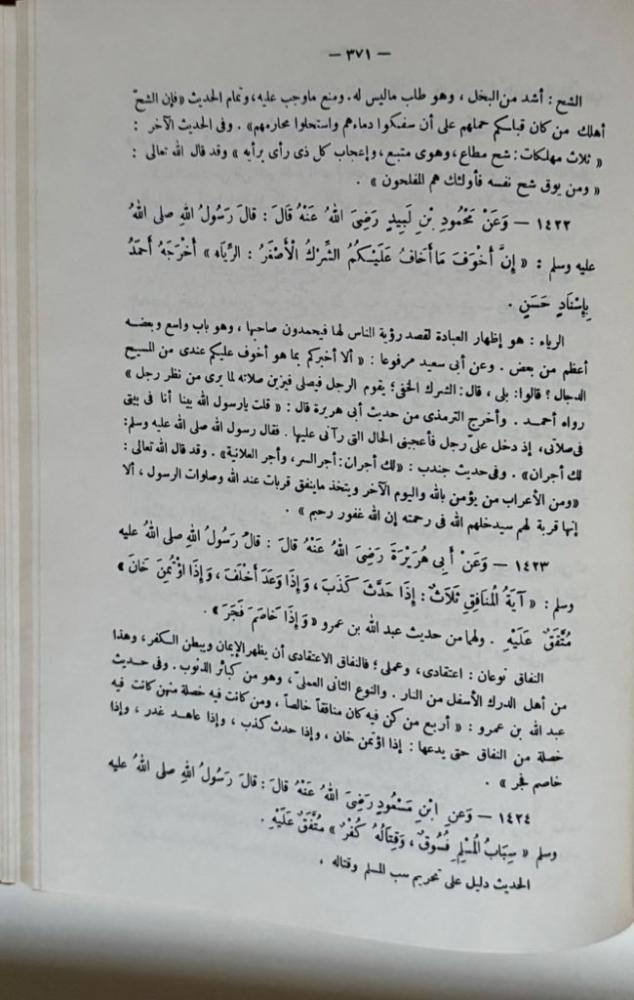 — ٣٧١ —
الشح : أشد من البخل ، وهو طلب ماليس له . ومنع ماوجب عليه ، وتمام الحديث «فإن الشحّ
أهلك من كان قبلكم حملهم على أن سفكوا دماءهم واستحلوا محارمهم» . وفى الحديث الآخر :
« ثلاث مهلكات : شح مطاع ، وهوى متبع ، وإعجاب كل ذى رأى برأيه » وقد قال الله تعالى :
« ومن يوق شح نفسه فأولئك هم المفلحون » .
١٤٢٢ — وَعَنْ مَحْمُودِ بْنِ لَبِيدٍ رَضِىَ اللهُ عَنْهُ قَالَ : قَالَ رَسُولُ اللهِ صلى اللهُ
عليه وسلم : « إِنَّ أَخْوَفَ مَا أَخَافُ عَلَيْكُمُ الشِّرْكُ الْأَصْغَرُ : الرِّيَاء » أَخْرَجَهُ أَحْمَدُ
بِإِسْنَادٍ حَسَنٍ .
الرياء : هو إظهار العبادة لقصد رؤية الناس لها فيحمدون صاحبها ، وهو باب واسع وبعضه
أعظم من بعض . وعن أبى سعيد مرفوعا : « ألا أخبركم بما هو أخوف عليكم عندى من المسيح
الدجال ؟ قالوا : بلى ، قال : الشرك الخفى ؛ يقوم الرجل فيصلى فيزين صلاته لما يرى من نظر رجل »
رواه أحمد . وأخرج الترمذى من حديث أبى هريرة قال : « قلت يارسول الله بينا أنا فى بيتى
فى صلاتى ، إذ دخل علىّ رجل فأعجبنى الحال التى رآنى عليها . فقال رسول الله صلى الله عليه وسلم :
لك أجران» . وفى حديث جندب : «لك أجران : أجر السر ، وأجر العلانية» . وقد قال الله تعالى :
«ومن الأعراب من يؤمن بالله واليوم الآخر ويتخذ ماينفق قربات عند الله وصلوات الرسول ، ألا
إنها قربة لهم سيدخلهم الله فى رحمته إن الله غفور رحيم » .
١٤٢٣ — وَعَنْ أَبِى هُرَيْرَةَ رَضِىَ اللهُ عَنْهُ قَالَ : قَالَ رَسُولُ اللهِ صلى اللهُ عليه
وسلم : « آيَةُ الْمُنَافِقِ ثَلَاثٌ : إِذَا حَدَّثَ كَذَبَ ، وَإِذَا وَعَدَ أَخْلَفَ ، وَإِذَا اؤْتُمِنَ خَانَ »
مُتَّفَقٌ عَلَيْهِ . ولهما من حديث عبد الله بن عمرو « وَإِذَا خَاصَمَ فَجَرَ » .
النفاق نوعان : اعتقادى ، وعملى ؛ فالنفاق الاعتقادى أن يظهر الإيمان ويبطن الكفر ، وهذا
من أهل الدرك الأسفل من النار . والنوع الثانى العملىّ ، وهو من كبائر الذنوب . وفى حديث
عبد الله بن عمرو : « أربع من كن فيه كان منافقاً خالصاً ، ومن كانت فيه خصلة منهن كانت فيه
خصلة من النفاق حتى يدعها : إذا اؤتمن خان ، وإذا حدث كذب ، وإذا عاهد غدر ، وإذا
خاصم فجر » .
١٤٢٤ — وَعَنِ ابْنِ مَسْعُودٍ رَضِىَ اللهُ عَنْهُ قَالَ : قَالَ رَسُولُ اللهِ صلى اللهُ عليه
وسلم « سِبَابُ الْمُسْلِمِ فُسُوقٌ ، وَقِتَالُهُ كُفْرٌ » مُتَّفَقٌ عَلَيْهِ .
الحديث دليل على تحريم سب المسلم وقتاله ،